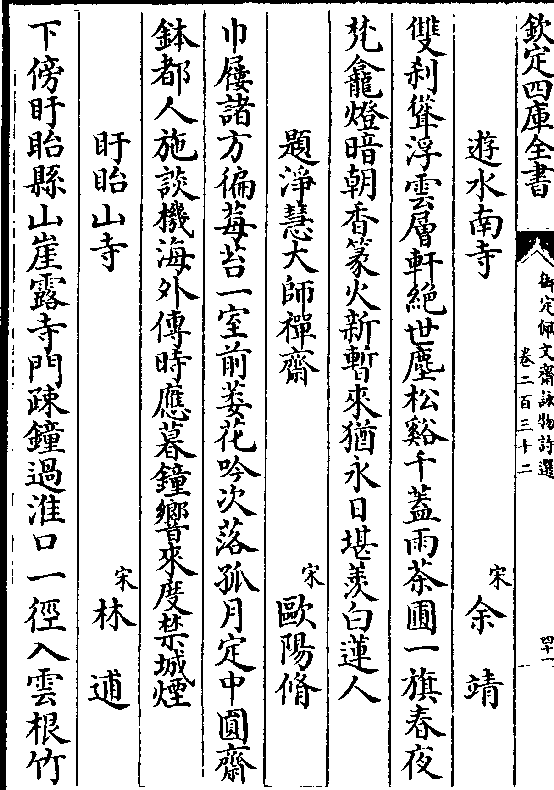 欽定四庫全書
御定佩文齋詠物詩選
卷二百三十二
四十一
遊水南寺
宋
余靖
雙刹聳浮雲層軒絕世塵松谿千蓋雨茶圃一旗春夜
梵龕燈暗朝香篆火新暫來猶永日堪羨白蓮人
題淨慧大師禪齋
宋
歐陽脩
巾屨諸方徧莓苔一室前菱花吟次落孤月定中圓齋
鉢都人施談機海外傳時應暮鐘響來度禁城煙
盱眙山寺
宋
林逋
下傍盱眙縣山崖露寺門疎鐘過淮口一徑入雲根竹